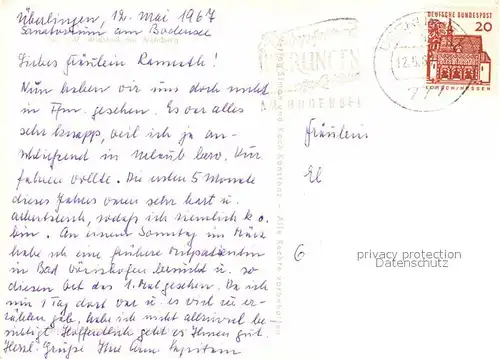 Überlingen, 12. Mai 1967
Sanatorium am Bodensee
Liebes Fräulein
Nun haben wir uns doch nicht
in Ffm. gesehen. Es war alles
sehr knapp, weil ich ja an-
schließend in Urlaub bzw. Kur
fahren wollte. Die ersten 5 Monate
dieses Jahres waren sehr hart u.
arbeitsreich, sodaß ich ziemlich k.o.
bin. An einem Sonntag im März
habe ich eine frühere Mitpatientin
in Bad Wörishofen besucht u. so
diesen Ort das 1. Mal gesehen. Da ich
nur 1 Tag dort war u. es viel zu er-
zählen gab, habe ich nicht allzuviel be-
sichtigt. Hoffentlich geht es Ihnen gut.
Herzl. Grüße Ihre
DEUTSCHE BUNDESPOST
20
LORSCH/HESSEN
ÜBERLINGEN
AM BODENSEE
12.5.6
777
Fräulein
El
6
privacy protection
Datenschutz